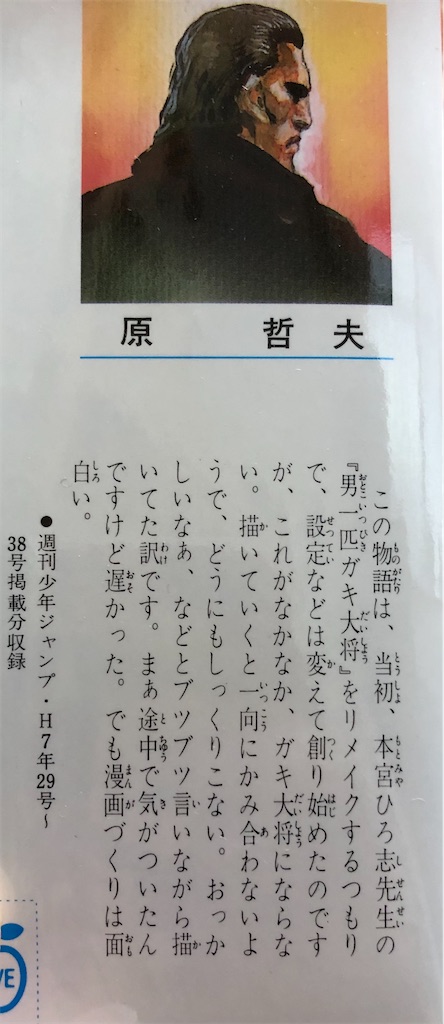 原 哲夫
この物語は、当初、本宮ひろ志先生の
『男一匹ガキ大将』をリメイクするつもり
で、設定などは変えて創り始めたのです
が、これがなかなか、ガキ大将にならな
い。描いていくと一向にかみ合わないよ
うで、どうにもしっくりこない。おっか
しいなぁ、などとブツブツ言いながら描
いてた訳です。まぁ途中で気がついたん
ですけど遅かった。でも漫画づくりは面
白い。
●週刊少年ジャンプ・H7年29号〜
38号掲載分収録
VE